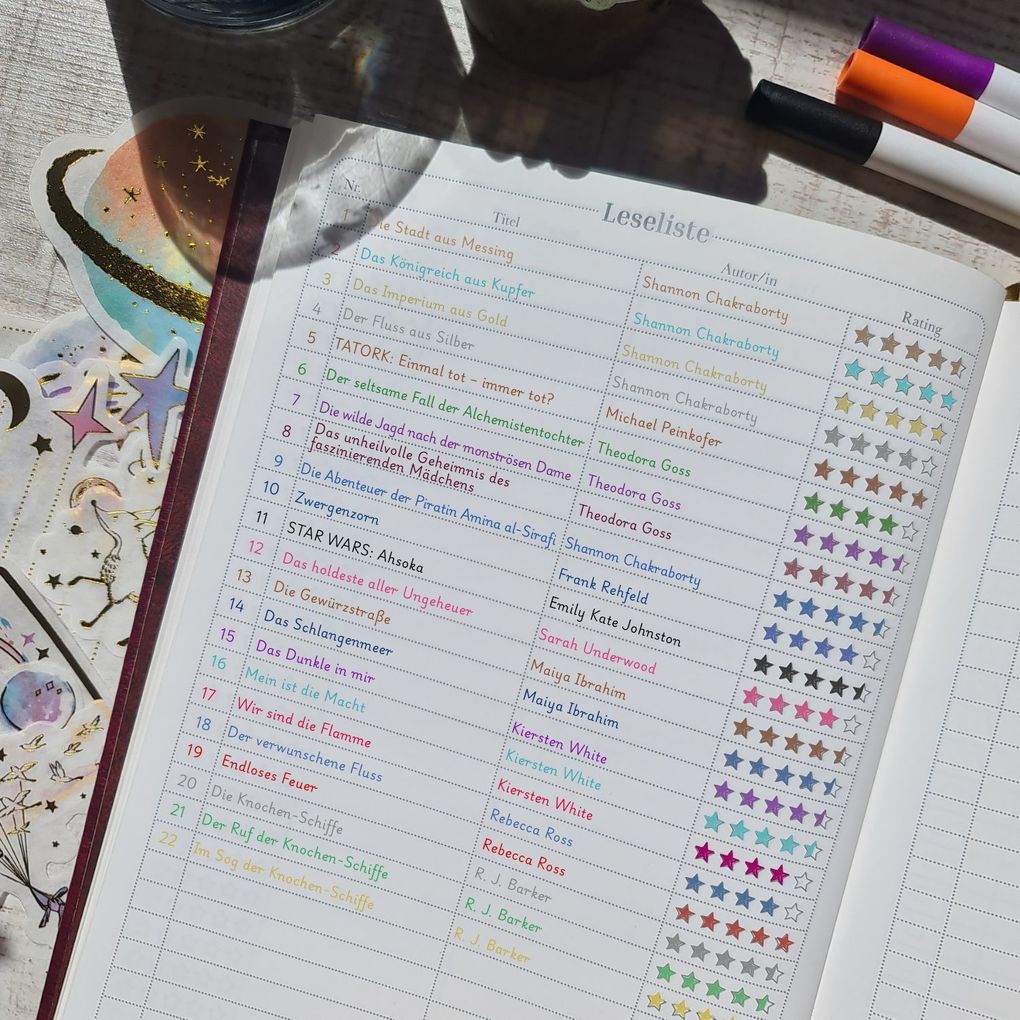 Leseliste
Nr. Titel Autor/in Rating
1 Die Stadt aus Messing Shannon Chakraborty
2 Das Königreich aus Kupfer Shannon Chakraborty
3 Das Imperium aus Gold Shannon Chakraborty
4 Der Fluss aus Silber Shannon Chakraborty
5 TATORK: Einmal tot – immer tot? Michael Peinkofer
6 Der seltsame Fall der Alchemistentochter Theodora Goss
7 Die wilde Jagd nach der monströsen Dame Theodora Goss
8 Das unheilvolle Geheimnis des
faszinierenden Mädchens Theodora Goss
9 Die Abenteuer der Piratin Amina al-Sirafi Shannon Chakraborty
10 Zwergenzorn Frank Rehfeld
11 STAR WARS: Ahsoka Emily Kate Johnston
12 Das holdeste aller Ungeheuer Sarah Underwood
13 Die Gewürzstraße Maiya Ibrahim
14 Das Schlangenmeer Maiya Ibrahim
15 Das Dunkle in mir Kiersten White
16 Mein ist die Macht Kiersten White
17 Wir sind die Flamme Kiersten White
18 Der verwunschene Fluss Rebecca Ross
19 Endloses Feuer Rebecca Ross
20 Die Knochen-Schiffe R. J. Barker
21 Der Ruf der Knochen-Schiffe R. J. Barker
22 Im Sog der Knochen-Schiffe R. J. Barker